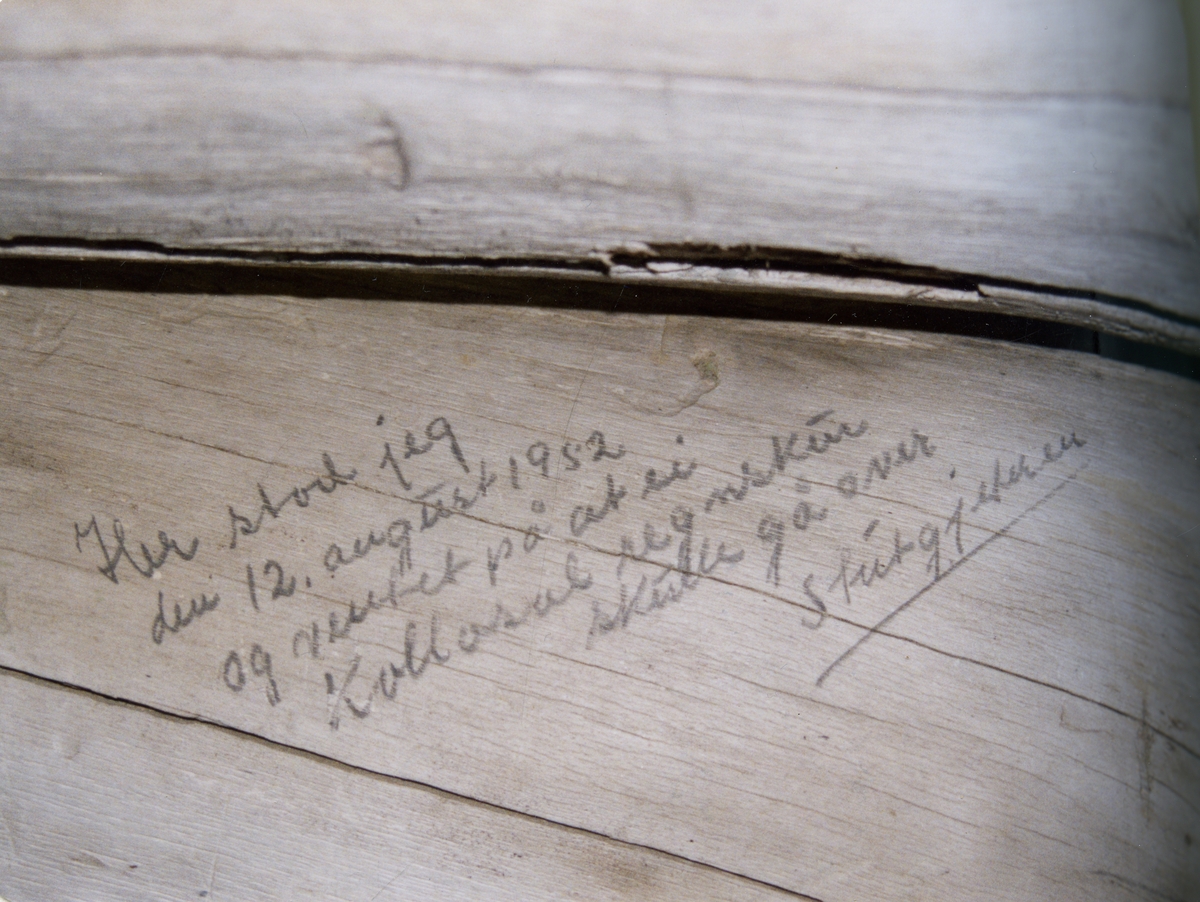 Her stod jeg
den 12. august 1952
og ventet på at ei
Kollosal regnskur
skulle gå over
Stutgjeteren